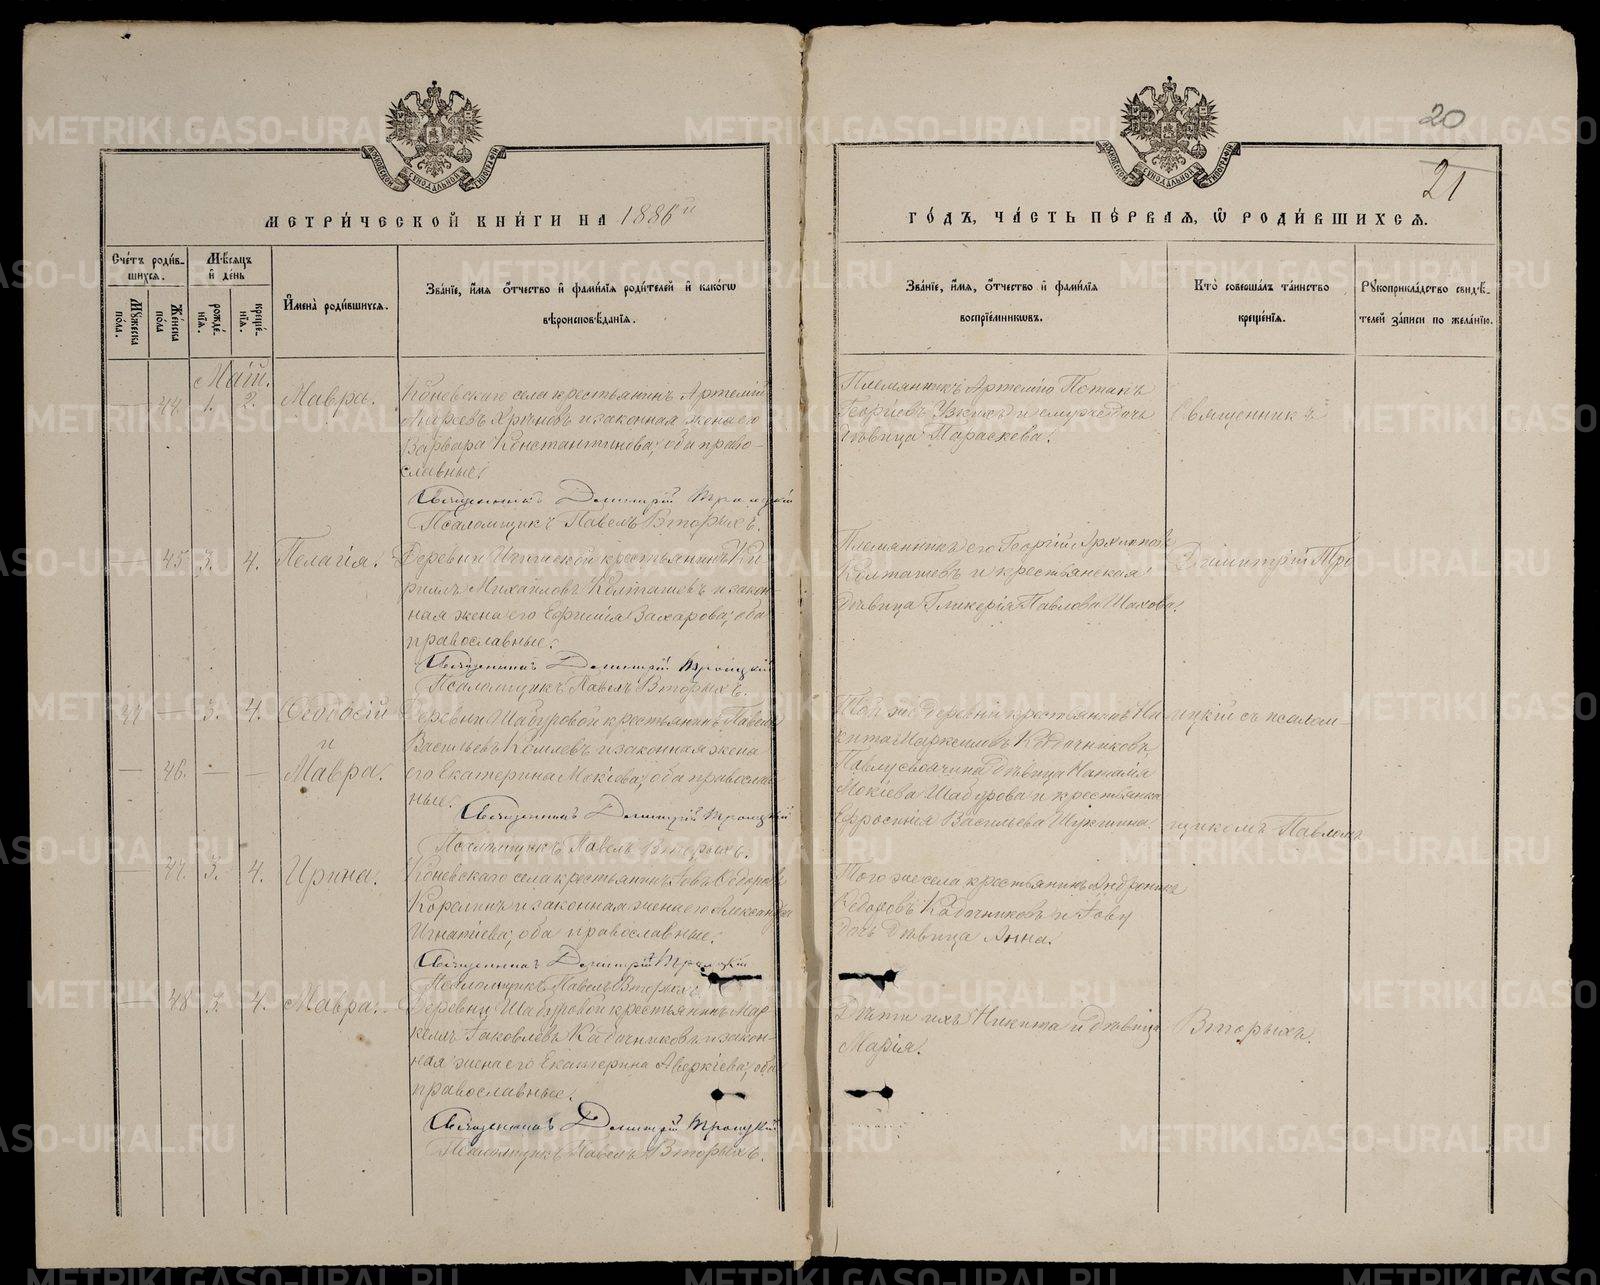 20
21
МЕТРИ́ЧЕСКОЙ КНИ́ГИ НА 1886й
ГО́ДЪ, ЧА́СТЬ ПЕ́РВАЯ, Ѿ РОДИ́ВШИХСЯ.
Сче́тъ роди́в-
шихся.
Мѣ́сяцъ
и де́нь
Му́жеска по́ла.
Же́нска по́ла
рожде́-
нїя.
креще́-
нїя.
И́мена̀ роди́вшихся.
Зва́нїе, и́мя ѻ́тчество и фами́лїя роди́телей и како́гѡ
вѣроисповѣ́данїя.
Зва́нїе, и́мя, ѻ́тчество и фами́лїя
воспрїе́мникѡвъ.
Кто̀ соверша́лъ та́инство
креще́нїя.
Рꙋкоприкла́дство свидѣ́-
телей за́писи по жела́нїю.
Май.
— 44. 1. 2. Мавра.
Коневскаго села крестьянинъ Артемій
и законная жена его
Варвара Константинова; оба право-
славные.
Священникъ Димитрій Троицкій
Псаломщикъ Павелъ Вторыхъ.
Племянникъ Артемію Потапъ
Георгіевъ Узкихъ и ему же дочь
дѣвица Параскева.
Священникъ
— 45 3. 4. Пелагія.
Деревни крестьянинъ Ки-
риллъ Михайловъ Колташевъ и закон-
ная жена его Захарова; оба
православные.
Священникъ Димитрій Троицкій
Псаломщикъ Павелъ Вторыхъ.
Племянникъ его Георгій
Колташевъ и крестьянская
дѣвица Гликерія Павлова
Димитрій Тро
— 3. 4. Ѳеодосій
и
— 46. — — Мавра.
Деревни Шабуровой крестьянинъ Павелъ
Васильевъ Комлевъ и законная жена
его Екатерина Мокіева; оба православ
ные.
Священникъ Димитрій Троицкій
Псаломщикъ Павелъ Вторыхъ.
Той же деревни крестьянинъ Ни
кита Маркеловъ Кадочниковъ,
Павлу дѣвица Наталія
Мокіева Шабурова и крестьянка
Ефросинія Васильева
ицкій съ псалом-
щикомъ Павломъ
— 47. 3. 4. Ирина.
Коневскаго села крестьянинъ Іовъ Ѳедоровъ
Корелинъ и законная жена его Александра
Игнатіева; оба православные.
Священникъ Димитрій Троицкій
Псаломщикъ Павелъ Вторыхъ.
Того же села крестьянинъ Андроникъ
Ѳедоровъ Кадочниковъ и Іову
дочь дѣвица Анна.
— 48 3. 4. Мавра.
Деревни Шабуровой крестьянинъ Мар-
келъ Іаковлевъ Кадочниковъ и закон-
ная жена его Екатерина Аверкіева; оба
православные.
Священникъ Димитрій Троицкій
Псаломщикъ Павелъ Вторыхъ.
Дѣти ихъ Никита и дѣвица
Марія.
Вторыхъ.
METRIKI.GASO-URAL.RU